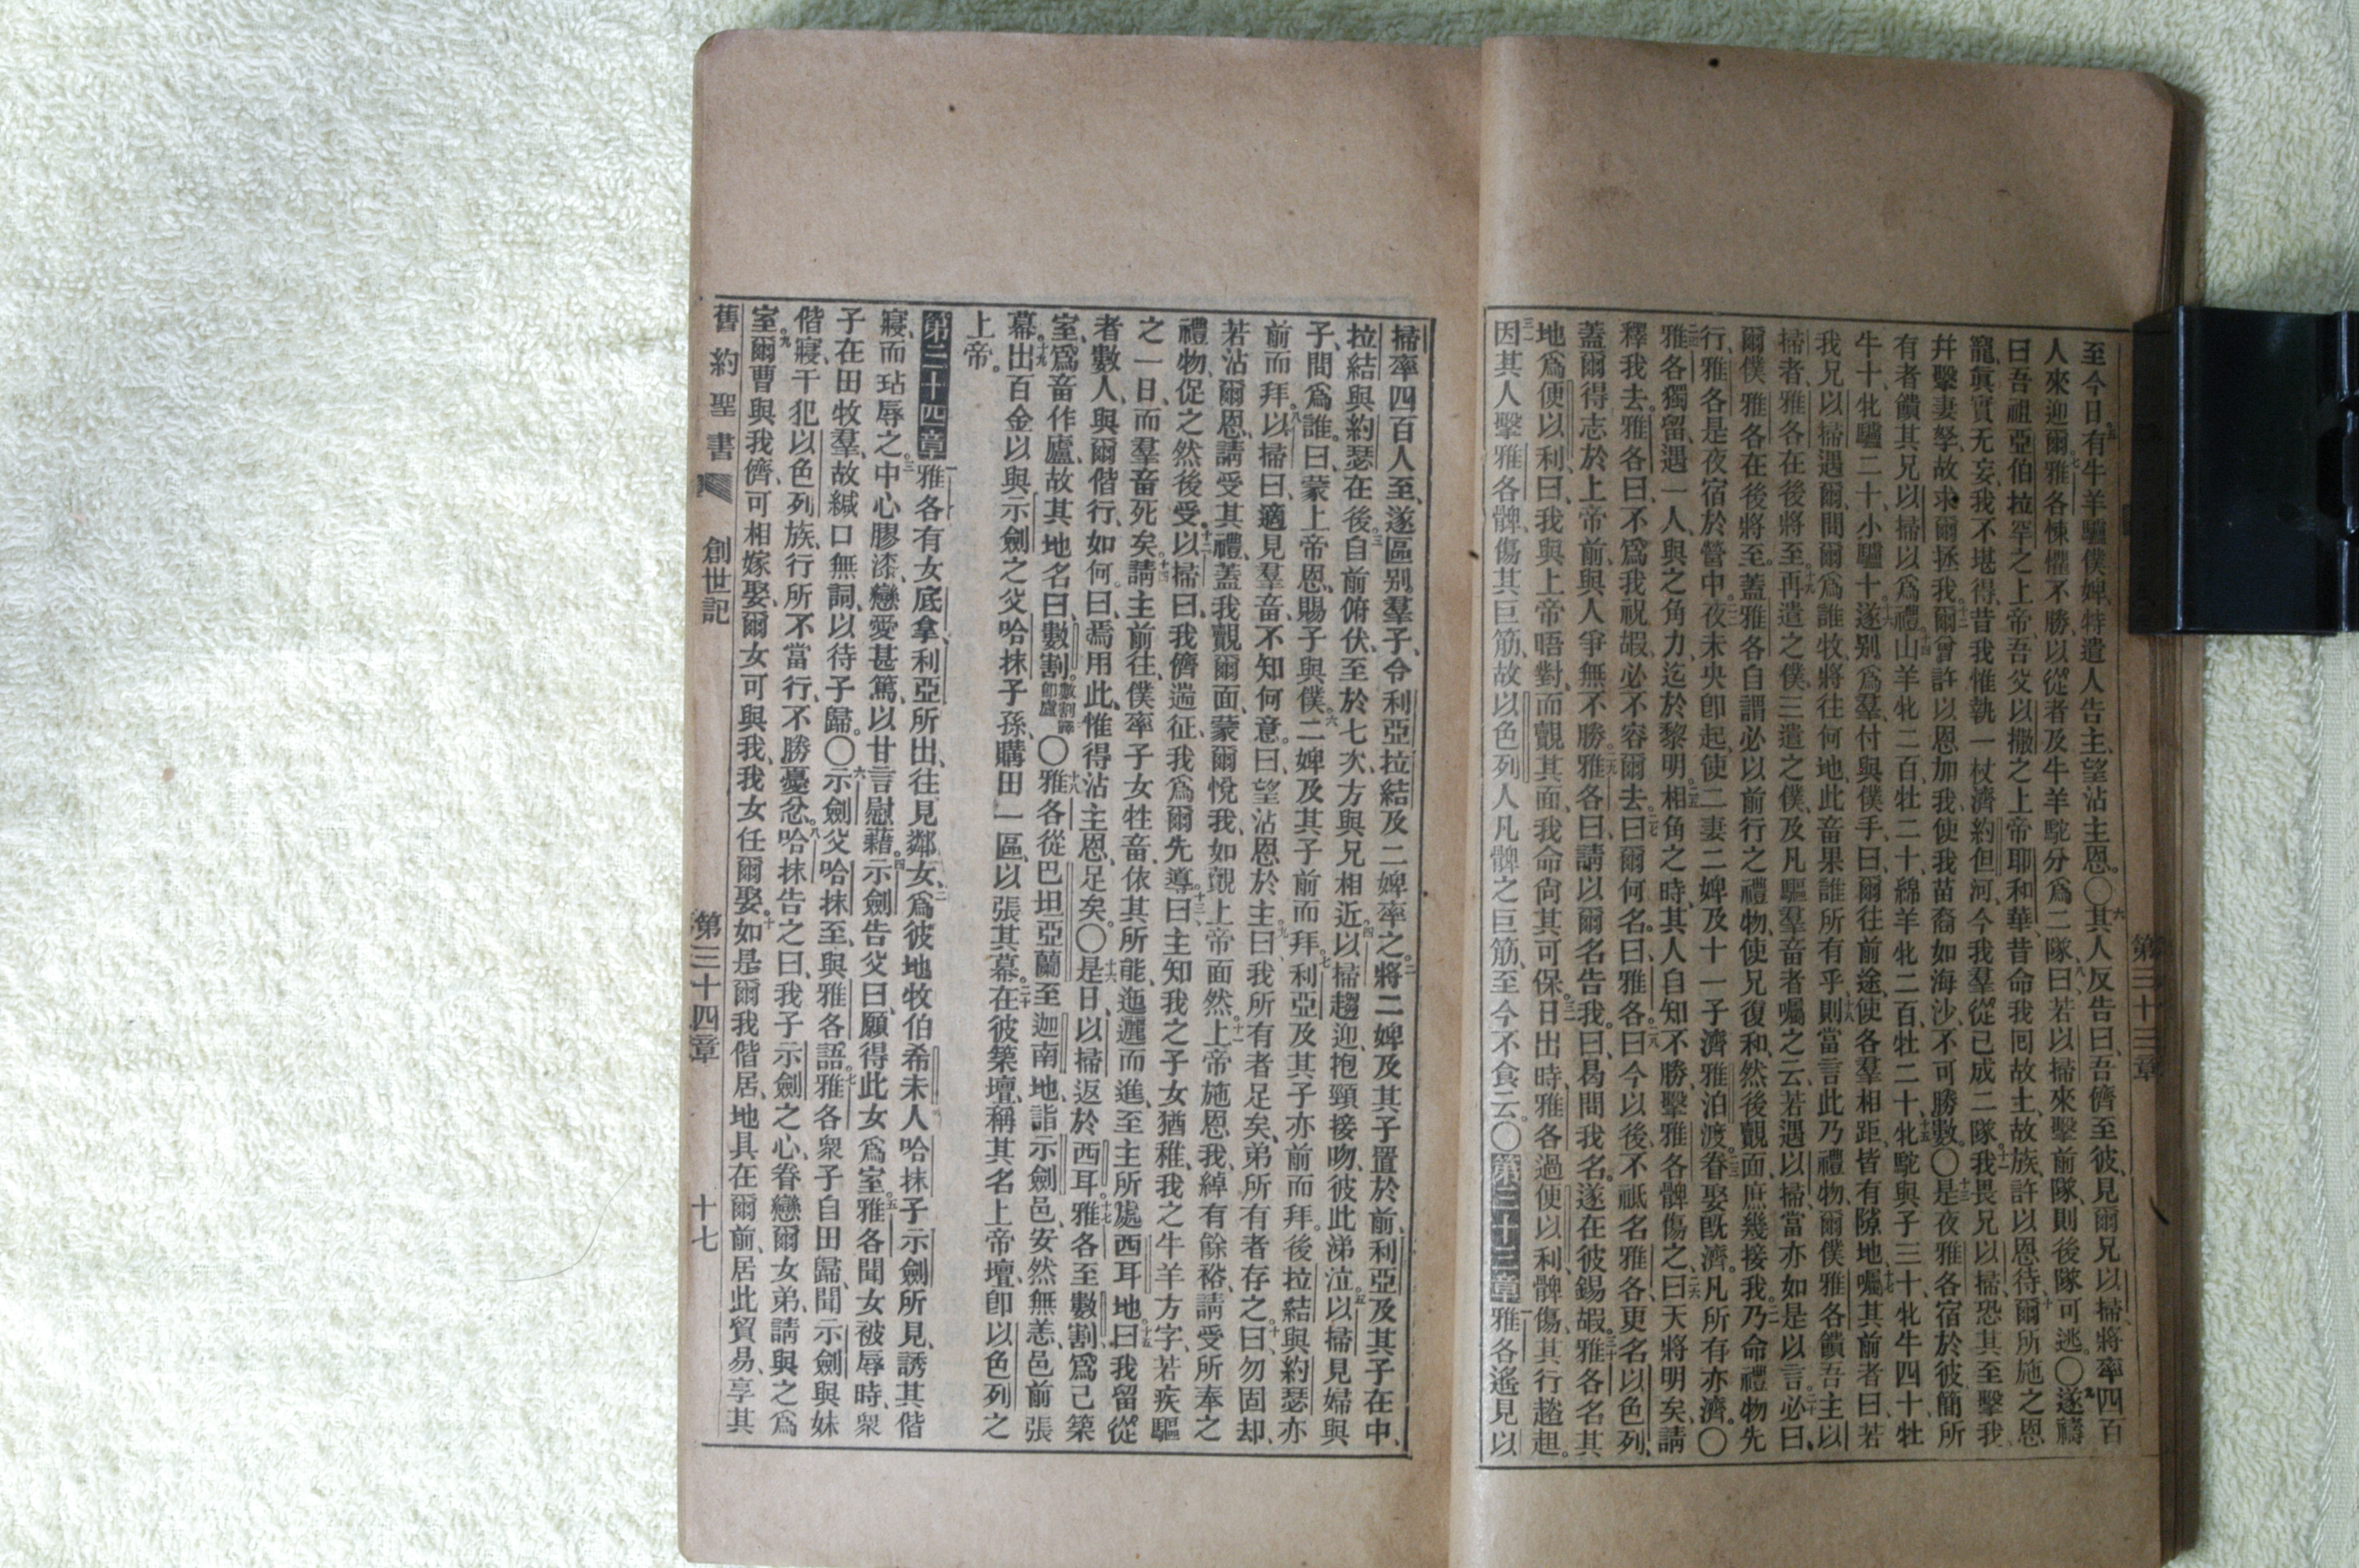 至今日、五有牛羊驢僕婢、特遣人告主、望沾主恩。〇六其人反告曰、吾儕至彼、見爾兄以掃、將率四百
人來迎爾。七雅各悚懼不勝、以從者及牛羊駝分爲二隊、八曰、若以掃來擊前隊、則後隊可逃。〇九遂禱
曰、吾祖亞伯拉罕之上帝、吾父以撒之上帝耶和華、昔命我囘故土、故族、許以恩待、十爾所施之恩
寵眞實无妄、我不堪得、昔我惟執一杖濟約但河、今我羣從已成二隊。十一我畏兄以掃、恐其至擊我、
幷擊妻孥、故求爾拯我。十二爾曾許以恩加我、使我苗裔如海沙、不可勝數。〇十三是夜雅各宿於彼、簡所
有者饋其兄以掃以爲禮、十四山羊牝二百、牡二十、綿羊牝二百、牡二十、十五牝駝與子三十、牝牛四十、牡
牛十、牝驢二十、小驢十。十六遂別爲羣、付與僕手、曰、爾往前途、使各羣相距、皆有隙地、十七囑其前者曰、若
我兄以掃遇爾、問爾爲誰、牧將往何地、此畜果誰所有乎、十八則當言此乃禮物、爾僕雅各饋吾主以
掃者、雅各在後將至。十九再遣之僕、三遣之僕、及凡驅羣畜者、囑之云、若遇以掃、當亦如是以言、二十必曰、
爾僕雅各在後將至。蓋雅各自謂必以前行之禮物、使兄復和、然後覿面、庶幾接我。二一乃命禮物先
行、雅各是夜宿於營中。二二夜未央卽起、使二妻二婢及十一子濟雅泊渡。二三眷娶旣濟、凡所有亦濟。〇
二四雅各獨留、遇一人、與之角力、迄於黎明。二五相角之時、其人自知不勝、擊雅各髀傷之、二六曰、天將明矣、請
釋我去。雅各曰、不爲我祝嘏、必不容爾去。二七曰、爾何名。曰、雅各。二八曰、今以後不祗名雅各、更名以色列、
蓋爾得志於上帝前、與人爭無不勝。二九雅各曰、請以爾名告我。曰、曷問我名。遂在彼錫嘏。三十雅各名其
地爲便以利、曰、我與上帝晤對、而覿其面、我命尙其可保。三一日出時、雅各過便以利、髀傷、其行趦趄。
三二因其人擊雅各髀、傷其巨筋、故以色列人凡髀之巨筋、至今不食云。〇第三十三章一雅各遙見以
第三十三章
掃率四百人至、遂區別羣子、令利亞拉結及二婢率之。二將二婢及其子置於前、利亞及其子在中、
拉結與約瑟在後。三自前俯伏、至於七次、方與兄相近。四以掃趨迎、抱頸接吻、彼此涕泣。五以掃見婦與
子、問爲誰。曰、蒙上帝恩、賜子與僕。六二婢及其子前而拜、七利亞及其子亦前而拜。後拉結與約瑟亦
前而拜。八以掃曰、適見羣畜、不知何意。曰、望沾恩於主。九曰、我所有者足矣、弟所有者存之。十曰、勿固却、
若沾爾恩、請受其禮、蓋我覿爾面、蒙爾悅我、如覲上帝面然。十一上帝施恩我、綽有餘裕、請受所奉之
禮物、促之然後受。十二以掃曰、我儕遄征、我爲爾先導。十三曰、主知我之子女猶稚、我之牛羊方字、若疾驅
之一日、而羣畜死矣。十四請主前往、僕率子女牲畜、依其所能、迤邐而進、至主所處西耳地。十五曰、我留從
者數人、與爾偕行、如何。曰、焉用此、惟得沾主恩、足矣。〇十六是日、以掃返於西耳。十七雅各至數割、爲己築
室、爲畜作廬、故其地名曰、數割。數割譯卽廬〇十八雅各從巴坦亞蘭至迦南地、詣示劍邑、安然無恙、邑前張
幕。十九出百金以與示劍之父哈抹子孫、購田一區、以張其幕。二十在彼築壇、稱其名上帝壇、卽以色列之
上帝。
第三十四章一雅各有女底拿、利亞所出、往見鄰女、二爲彼地牧伯希未人哈抹子示劍所見、誘其偕
寢、而玷辱之。三中心膠漆、戀愛甚篤、以甘言慰藉。四示劍告父曰、願得此女爲室。五雅各聞女被辱時、衆
子在田牧羣、故緘口無詞、以待子歸。〇六示劍父哈抹至、與雅各語。七雅各衆子自田歸、聞示劍與妹
偕寢、干犯以色列族、行所不當行、不勝憂忿。八哈抹告之曰、我子示劍之心、眷戀爾女弟、請與之爲
室。九爾曹與我儕、可相嫁娶、爾女可與我、我女任爾娶。十如是爾我偕居、地具在爾前、居此貿易、享其
舊約聖書 創世記 第三十四章 十七